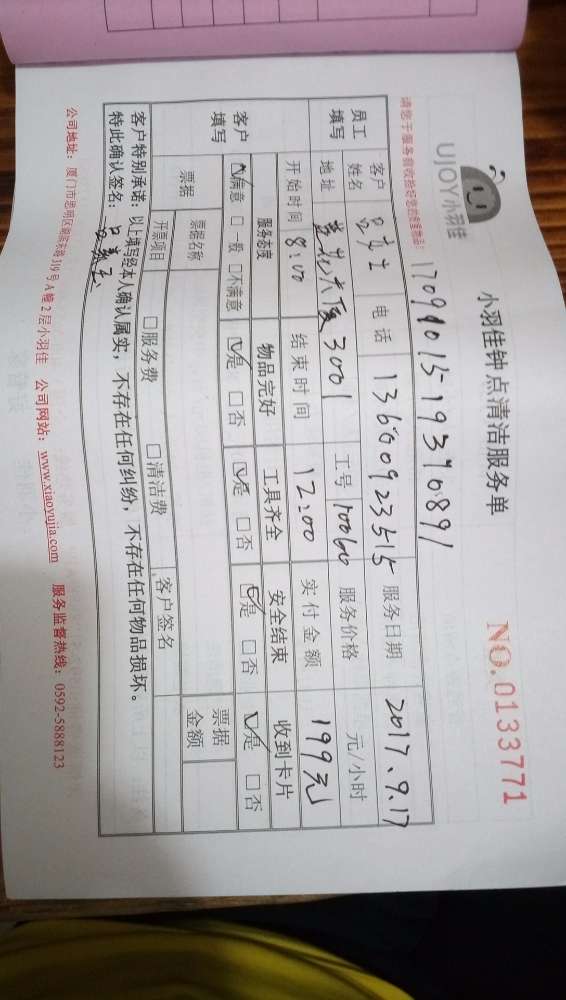 UJOY小羽佳
小羽佳钟点清洁服务单
NO.0133771
170991015-19390891
员工填写
客户姓名 吕女士 电话 13600923515 服务日期 2017.9.17
地址 3001 工号 10060 服务价格 元/小时
开始时间 8:00 结束时间 12:00 实付金额 199元
客户填写
服务态度 物品完好 工具齐全 安全结束 收到卡片
☑满意 □一般 □不满意 ☑是 □否 ☑是 □否 ☑是 □否 ☑是 □否
票据 票据名称 客户签名 票据金额
开票项目 □服务费 □清洁费
客户特别承诺：以上填写经本人确认属实，不存在任何纠纷，不存在任何物品损坏。
特此确认签名：
公司地址：厦门市思明区湖滨东路319号A幢2层小羽佳 公司网站：www.xiaoyujia.com 服务监督热线：0592-5888123